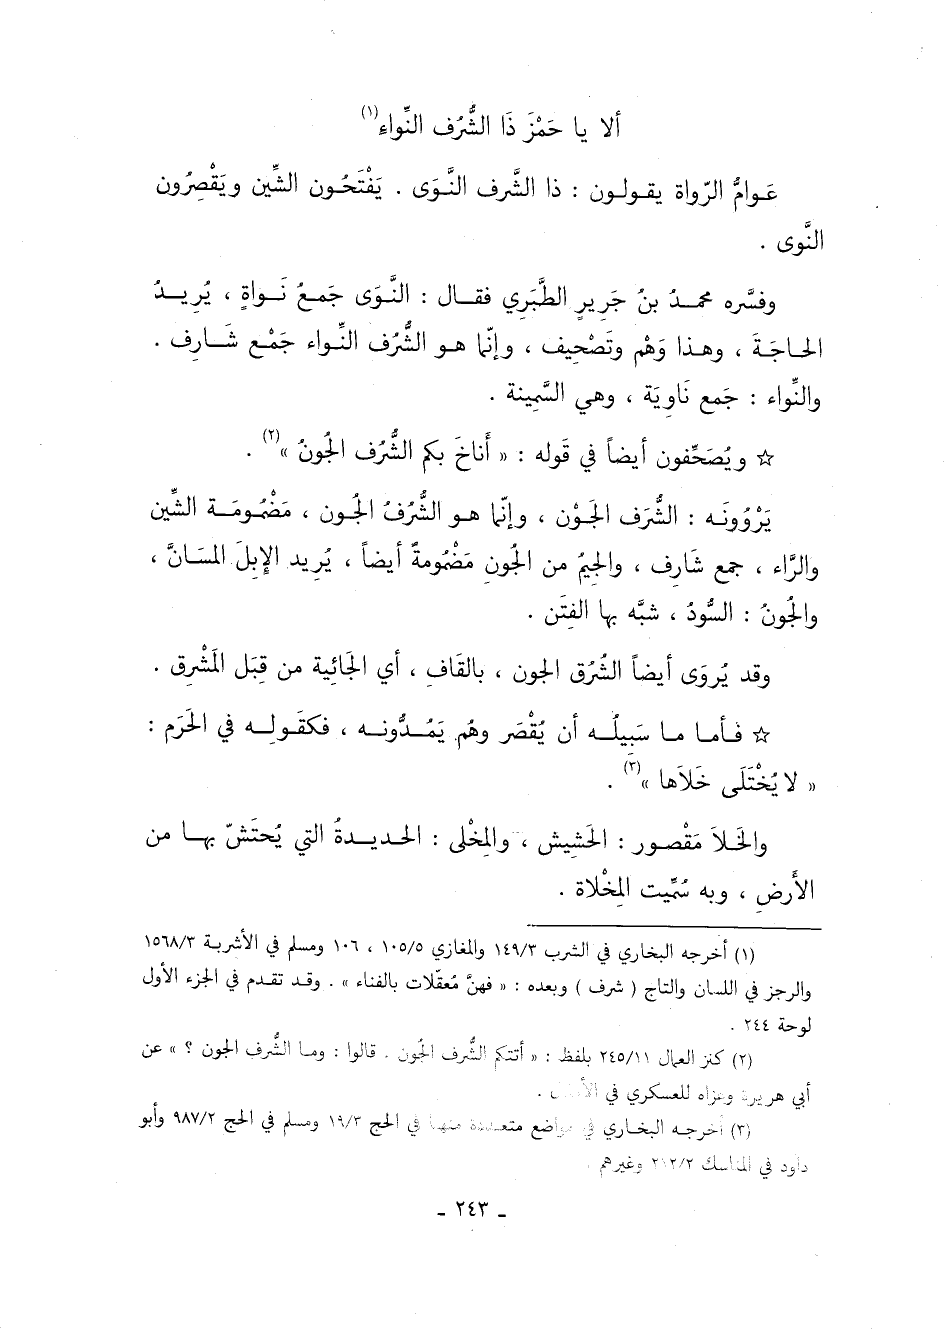 ألا يا حَمْزَ ذَا الشُّرُف النِّواء(١)
عَوامُّ الرّواة يقولون : ذا الشَّرف النَّوَى . يَفْتَحُون الشِّين ويَقْصِرُون
النَّوى .
وفسَّره محمدُ بنُ جَرِيرٍ الطَّبَرِي فقال : النَّوَى جَمعُ نَواةٍ ، يُريدُ
الحاجَةَ ، وهذا وَهْم وتَصْحيف ، وإنّما هو الشُّرُف النِّواء جَمْع شَارِف .
والنِّواء : جَمع نَاوِيَة ، وهي السَّمِينة .
☆ ويُصَحِّفون أيضاً في قَوله : « أَناخَ بكم الشُّرُف الجُونُ »(٢) .
يَرْوُونَه : الشَّرَف الجَوْن ، وإنّما هو الشُّرُفُ الجُون ، مَضْمُومَة الشِّين
والرَّاء ، جمع شَارِف ، والجِيمُ من الجُونِ مَضْمُومةٌ أيضاً ، يُرِيد الإِبلَ المسَانَّ ،
والجُونُ : السُّودُ ، شبَّه بها الفتَن .
وقد يُروَى أيضاً الشُرُق الجون ، بالقَافِ ، أي الجَائِية من قِبَل المَشْرِق .
☆ فأما ما سَبِيلُه أن يُقْصَر وهُم يَمُدُّونه ، فكقَولِه في الحَرَم :
« لا يُخْتَلَى خَلاَها »(٣) .
والخَلاَ مَقْصور : الحَشِيش ، والمِخْلى : الحديدةُ التي يُحتَشّ بها من
الأَرضِ ، وبه سُمِّيت المِخْلاة .
(١) أخرجه البخاري في الشرب ١٤٩/٣ والمغازي ١٠٥/٥ ، ١٠٦ ومسلم في الأشربة ١٥٦٨/٣
والرجز في اللسان والتاج ( شرف ) وبعده : « فهنَّ مُعقّلات بالفناء » . وقد تقدم في الجزء الأول
لوحة ٢٤٤ .
(٢) كنز العمال ٢٤٥/١١ بلفظ : « أتتكم الشُّرف الجُون . قالوا : وما الشُّرف الجون ؟ » عن
أبي هريرة وعزاه للعسكري في .
(٣) أخرجه البخاري في مواضع متعددة منها في الحج ١٩/٣ ومسلم في الحج ٩٨٧/٢ وأبو
داود في المناسك ٢١٢/٢ وغيرهم .
- ٢٤٣ -